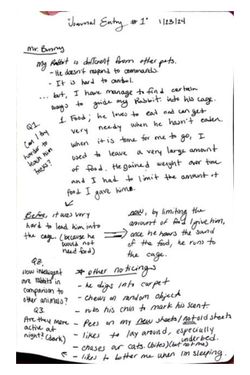 Journal Entry #1   1/23/24
Mr. Bunny
My Rabbit is different from other pets.
- He doesn't respond to commands.
- It is hard to control.
... but, I have manage to find certain
ways to guide my Rabbit into his cage.
1. Food; he loves to eat and can get
very needy when he hasn't eaten.
when it is time for me to go, I
used to leave a very large amount
of food. He gained weight over time
and I had to limit the amount of
food I gave him.
Q1.
Can I try
harder to
teach my
tricks?
Before it was very
hard to lead him into
the cage. (because he
would not
need food)
now, by limiting the
amount of food I give him,
once he hears the sound
of the food, he runs to
the cage.
Q2.
How intelligent
are rabbits in
comparison to
other animals?
Q3.
Are they more
active at
night? (dark)
* other noticings
- he digs into carpet
- chews on random object
- rubs his chin to mark his scent
- Pees on my new sheets / not old sheets
- likes to lay around, especially
under bed.
- chases our cats (bites) (but not me)
- likes to bother me when I'm sleeping.